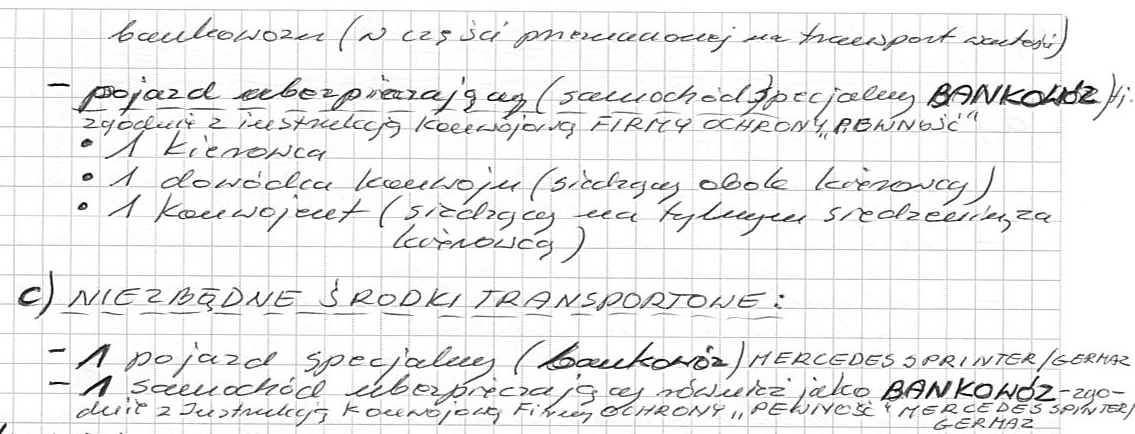 bankowozu (w części przeznaczonej na transport wartości)
- pojazd ubezpieczający (samochód specjalny BANKOWÓZ) tj.
zgodnie z instrukcją konwojową FIRMY OCHRONY „PEWNOŚĆ"
• 1 kierowca
• 1 dowódca konwoju (siedzący obok kierowcy)
• 1 konwojent (siedzący na tylnym siedzeniu, za
kierowcą)
c) NIEZBĘDNE ŚRODKI TRANSPORTOWE:
- 1 pojazd specjalny (bankowóz) MERCEDES SPRINTER/GERMAZ
- 1 samochód ubezpieczający również jako BANKOWÓZ - zgo-
dnie z Instrukcją Konwojową Firmy OCHRONY „PEWNOŚĆ" MERCEDES SPINTER/
GERMAZ